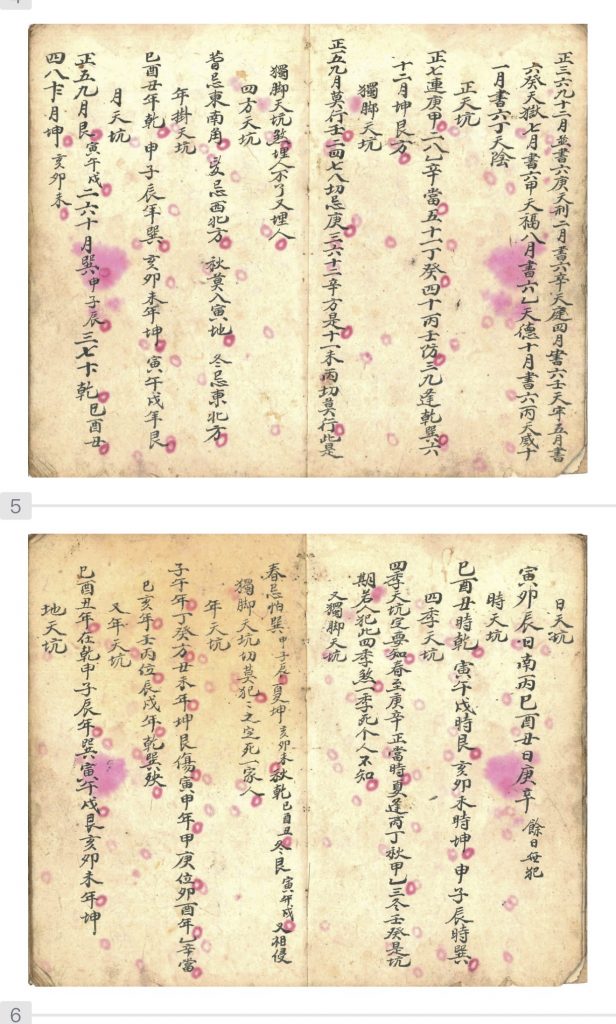 正三六九十二月並書六庚天刑二月書六辛天庭四月書六壬天牢五月書
六癸天獄七月書六甲天福八月書六乙天德十月書六丙天威十
一月書六丁天陰
正天坑
正七連庚甲二八乙辛當五十一丁癸四十丙壬防三九逢乾巽六
十二月坤艮方
獨脚天坑
正五九月莫行壬二四七八切忌庚三六十二辛方是十一未丙切莫行此是
獨脚天坑煞埋人不了又埋人
四方天坑
忌東南角 夏忌西北方 秋莫入寅地 冬忌東北方
年掛天坑
巳酉丑年乾 申子辰年巽 亥卯未年坤 寅午戌年艮
月天坑
正五九月艮 寅午戌 二六十月巽 申子辰 三七 乾 巳酉丑
四八 月坤 亥卯未
5
日天坑
寅卯辰日南丙巳酉丑日庚辛 餘日每犯
時天坑
巳酉丑時乾 寅午戌時艮 亥卯未時坤 申子辰時巽
四季天坑
四季天坑定要知春至庚辛正當時夏逢丙丁秋甲乙三冬壬癸是坑
期若人犯此四季煞一季死个人不知
又獨脚天坑
春忌怕巽 申子辰 夏坤 亥卯未 秋乾 巳酉丑 冬艮 寅午戌 又相侵
獨脚天坑切莫犯犯之定死一家人
年天坑
子午年丁癸方丑未年坤艮傷寅申年甲庚位卯酉年乙辛當
巳亥年壬丙位辰戌年乾巽殃
又年天坑
巳酉丑年在乾申子辰年巽寅午戌艮亥卯未年坤
地天坑
6